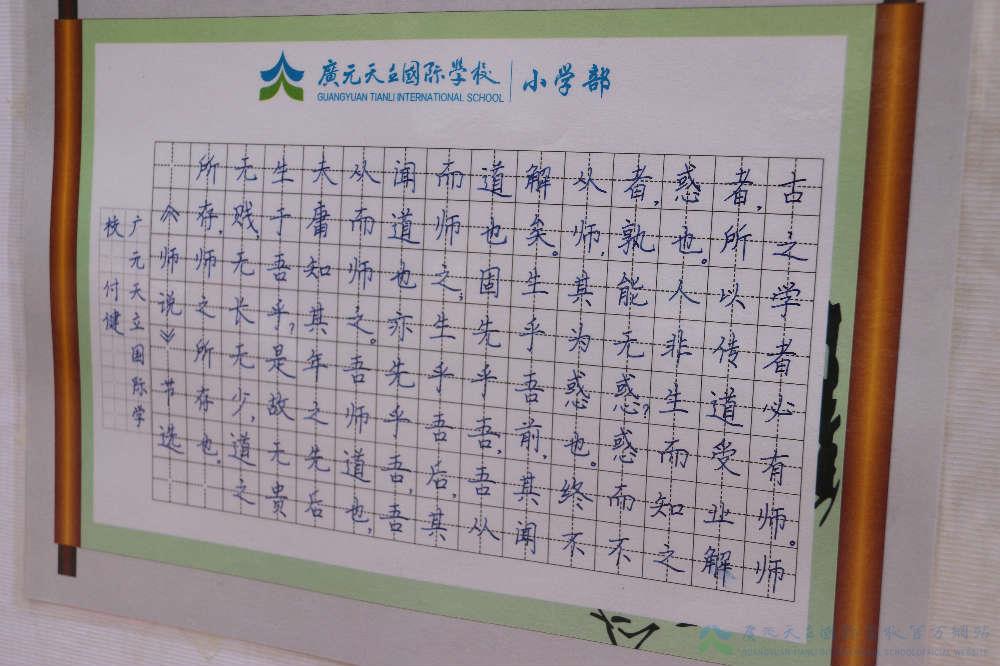 廣元天立國际學校
GUANGYUAN TIANLI INTERNATIONAL SCHOOL
小学部
古之学者必有师。师
者,所以传道受业解
惑也。人非生而知之
者,孰能无惑?惑而不
从师,其为惑也。终不
解矣。生乎吾前,其闻
道也固先乎吾,吾从
而师之;生乎吾后,其
闻道也亦先乎吾,吾
从而师之。吾师道也,
夫庸知其年之先后
生于吾乎?是故无贵
无贱,无长无少,道之
所存,师之所存也。
《师说》节选
广元天立国际学
校 付健
廣元天立國际學校官方網站
GUANGYUAN TIANLI INTERNATIONAL SCHOOLOFFICIAL WEBSITE